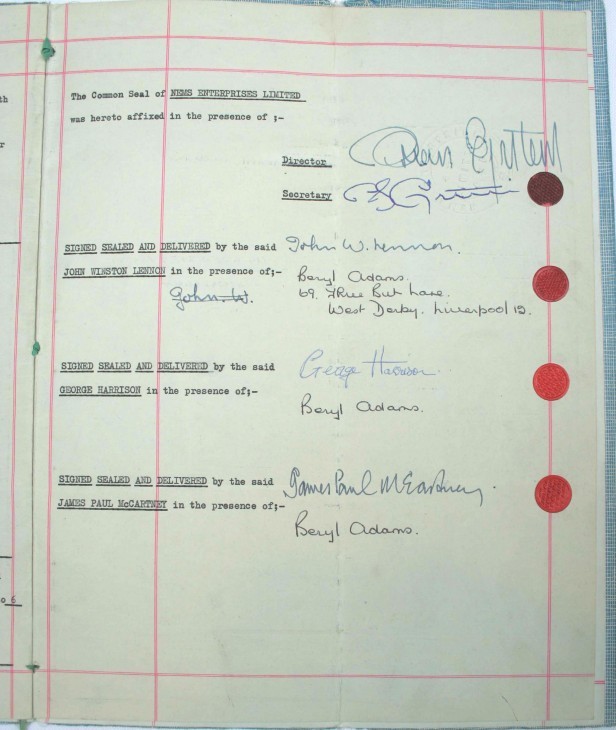 The Common Seal of NEMS ENTERPRISES LIMITED
was hereto affixed in the presence of ;-
Director
Epstein
Secretary
SIGNED SEALED AND DELIVERED by the said John W. Lennon.
JOHN WINSTON LENNON in the presence of;- Beryl Adams.
John. W. 69. Three But Lane.
West Derby. Liverpool 12.
SIGNED SEALED AND DELIVERED by the said George Harrison
GEORGE HARRISON in the presence of;-
Beryl Adams.
SIGNED SEALED AND DELIVERED by the said James Paul McCartney.
JAMES PAUL McCARTNEY in the presence of;-
Beryl Adams.
o 6